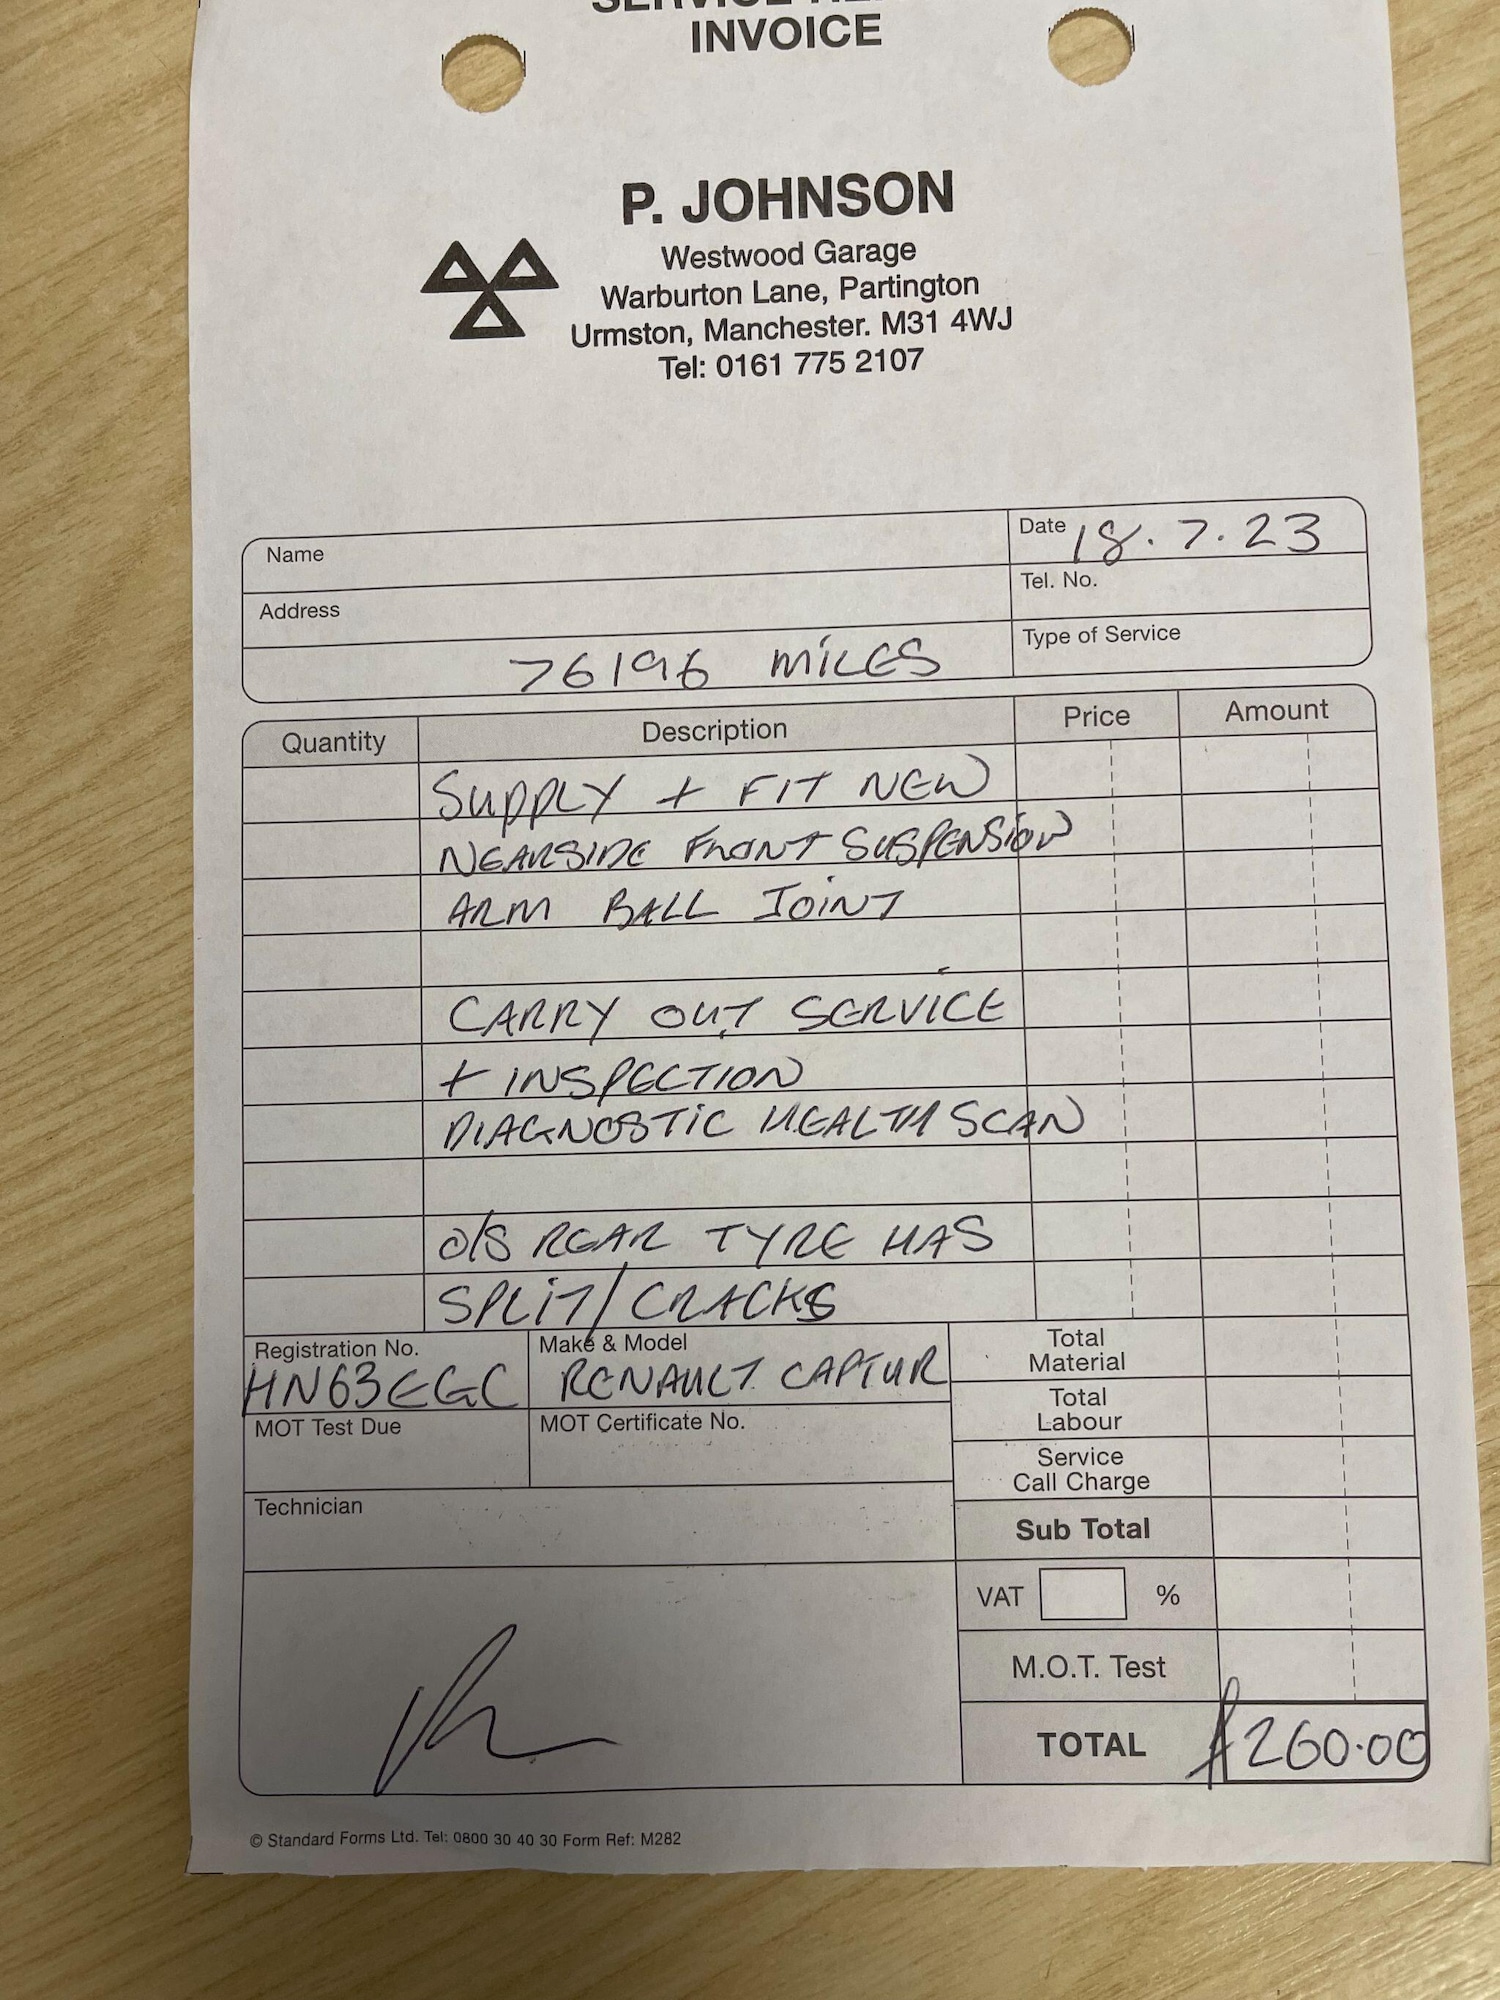 INVOICE
P. JOHNSON
Westwood Garage
Warburton Lane, Partington
Urmston, Manchester. M31 4WJ
Tel: 0161 775 2107
Name
Date 18.7.23
Address
Tel. No.
76196 MILES
Type of Service
Quantity Description Price Amount
SUPPLY + FIT NEW
NEARSIDE FRONT SUSPENSION
ARM BALL JOINT
CARRY OUT SERVICE
+ INSPECTION
DIAGNOSTIC HEALTH SCAN
O/S REAR TYRE HAS
SPLIT/CRACKS
Registration No. Make & Model
HN63EGC RENAULT CAPTUR
MOT Test Due MOT Certificate No.
Technician
Total
Material
Total
Labour
Service
Call Charge
Sub Total
VAT %
M.O.T. Test
TOTAL £260.00
© Standard Forms Ltd. Tel: 0800 30 40 30 Form Ref: M282